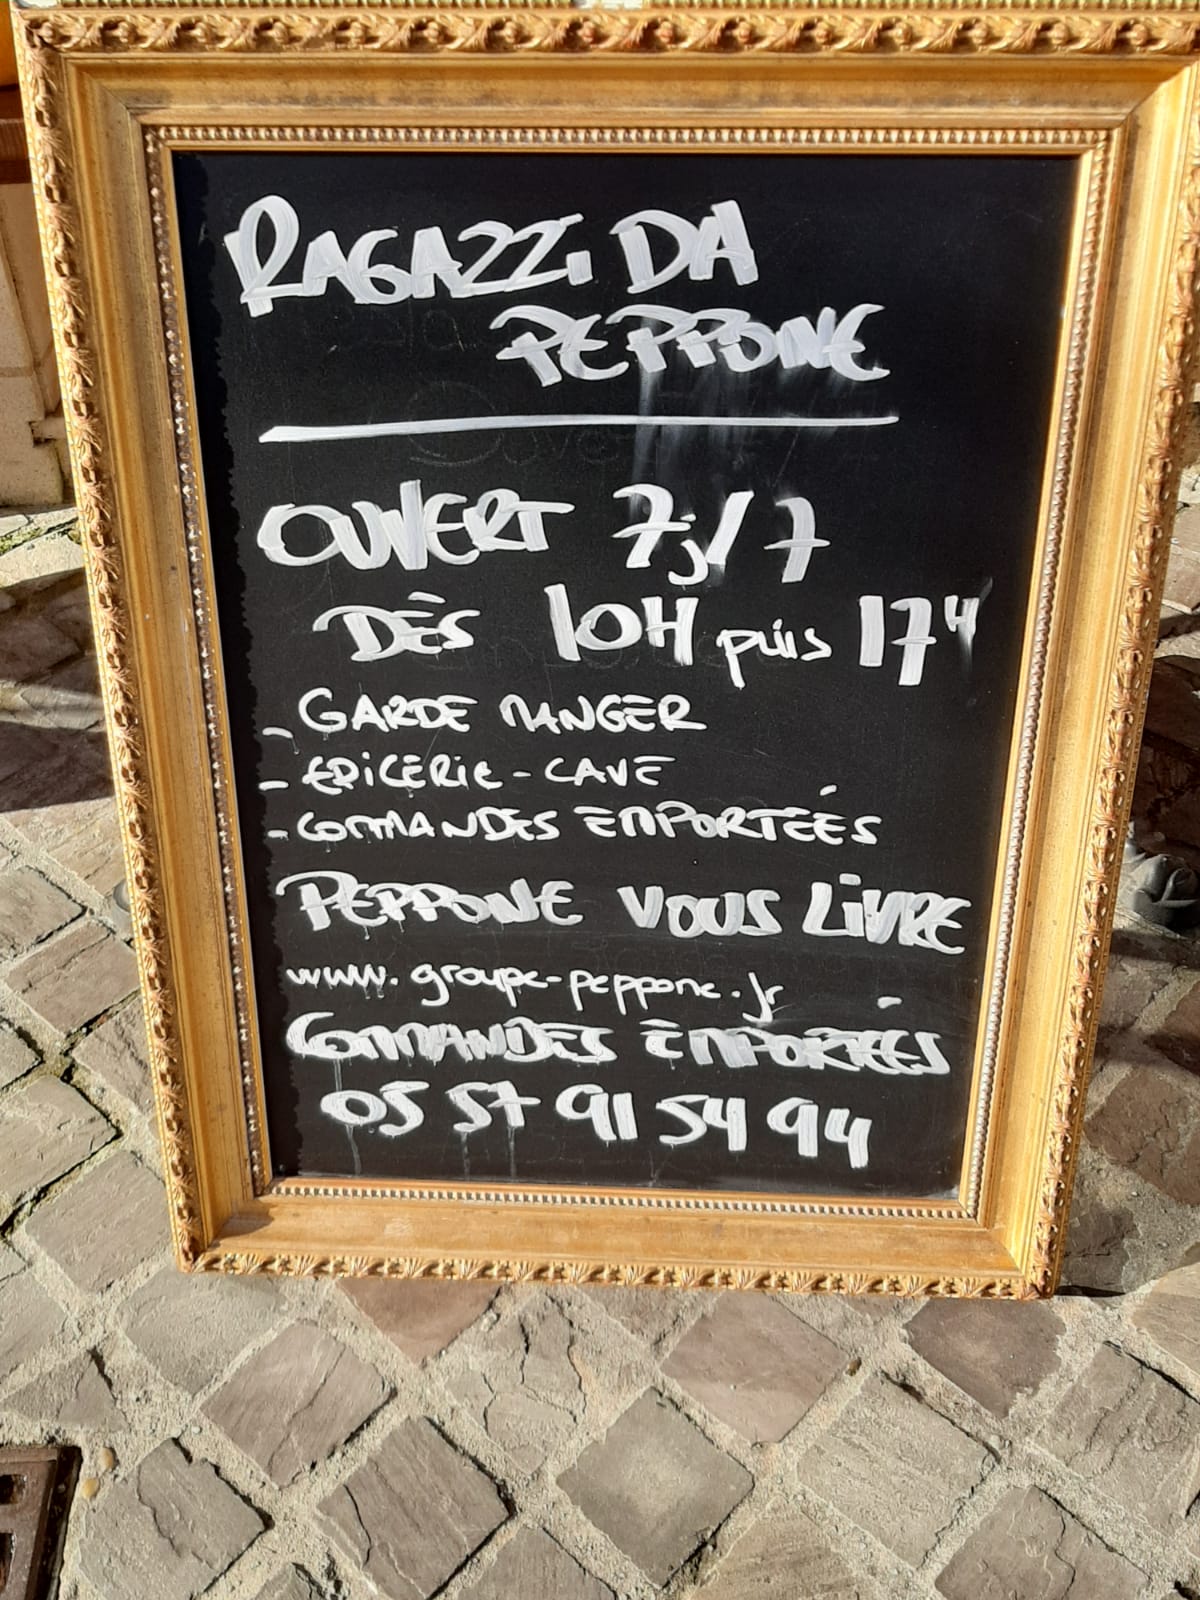 RAGAZZi DA
PEPPONE
OUVERT 7j/7
DÈS 10H puis 17H
- GARDE MANGER
- EPiCERiE - CAVE
- COMMANDES EMPORTÉES
PEPPONE VOUS LiVRE
www.groupe-peppone.fr
COMMANDES EMPORTÉES
05 57 91 54 94